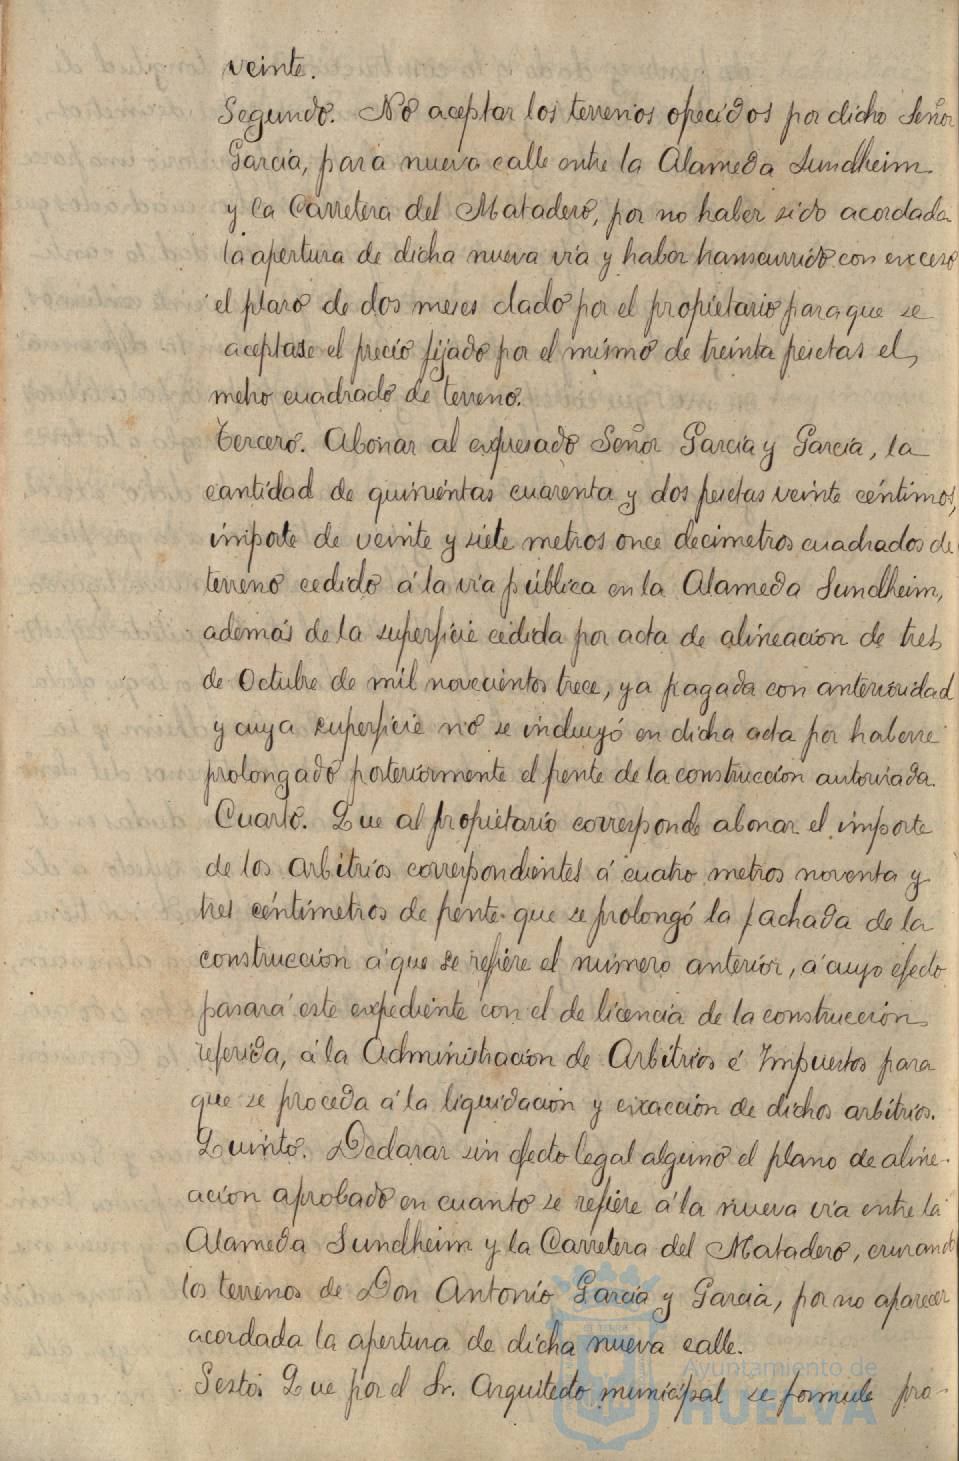 veinte.
Segundo. No aceptar los terrenos ofrecidos por dicho Señor
García, para nueva calle entre la Alameda Sundheim
y la Carretera del Matadero, por no haber sido acordada
la apertura de dicha nueva vía y haber transcurrido con exceso
el plazo de dos meses dado por el propietario para que se
aceptase el precio fijado por el mismo de treinta pesetas el
metro cuadrado de terreno.
Tercero. Abonar al expresado Señor García y García, la
cantidad de quinientas cuarenta y dos pesetas veinte céntimos,
importe de veinte y siete metros once decimetros cuadrados de
terreno cedido á la via pública en la Alameda Sundheim,
además de la superficie cedida por acta de alineacion de tres
de Octubre de mil novecientos trece, ya pagada con anterioridad
y cuya superficie no se incluyó en dicha acta por haberse
prolongado posteriormente el frente de la construccion autorizada.
Cuarto. Que al propietario corresponde abonar el importe
de los arbitrios correspondientes á cuatro metros noventa y
tres céntimetros de frente que se prolongó la fachada de la
construccion á que se refiere el número anterior, á cuyo efecto
pasará este expediente con el de licencia de la construccion
referida, á la Administracion de Arbitrios é Impuestos para
que se proceda á la liquidacion y exacción de dichos arbitrios.
Quinto. Declarar sin efecto legal alguno el plano de aline-
acion aprobado en cuanto se refiere á la nueva via entre la
Alameda Sundheim y la Carretera del Matadero, cruzando
los terrenos de Don Antonio García y García, por no aparecer
acordada la apertura de dicha nueva calle.
Sesto. Que por el Sr. Arquitecto municipal se formule pro-
Ayuntamiento de
HUELVA